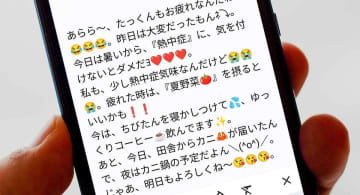 あらら〜、たっくんもお疲れなんだね
😂😂😂。昨日は大変だったもんね💦。
今日は暑いから、『熱中症』に、気を付
けないとダメだヨ❤❤❤。
私も、少し熱中症気味なんだけど😭😭
😭。疲れた時は、『夏野菜🍅』を摂ると
いいかも❗❗
今は、ちびたんを寝かしつけて💦、ゆっ
くりコーヒー☕飲んでます✨。
あと、今日、田舎からカニ🦀が届いたん
で、夜はカニ鍋の予定だよん＼(^o^)／。
じゃあ、明日もよろしくね〜😘😘😘。